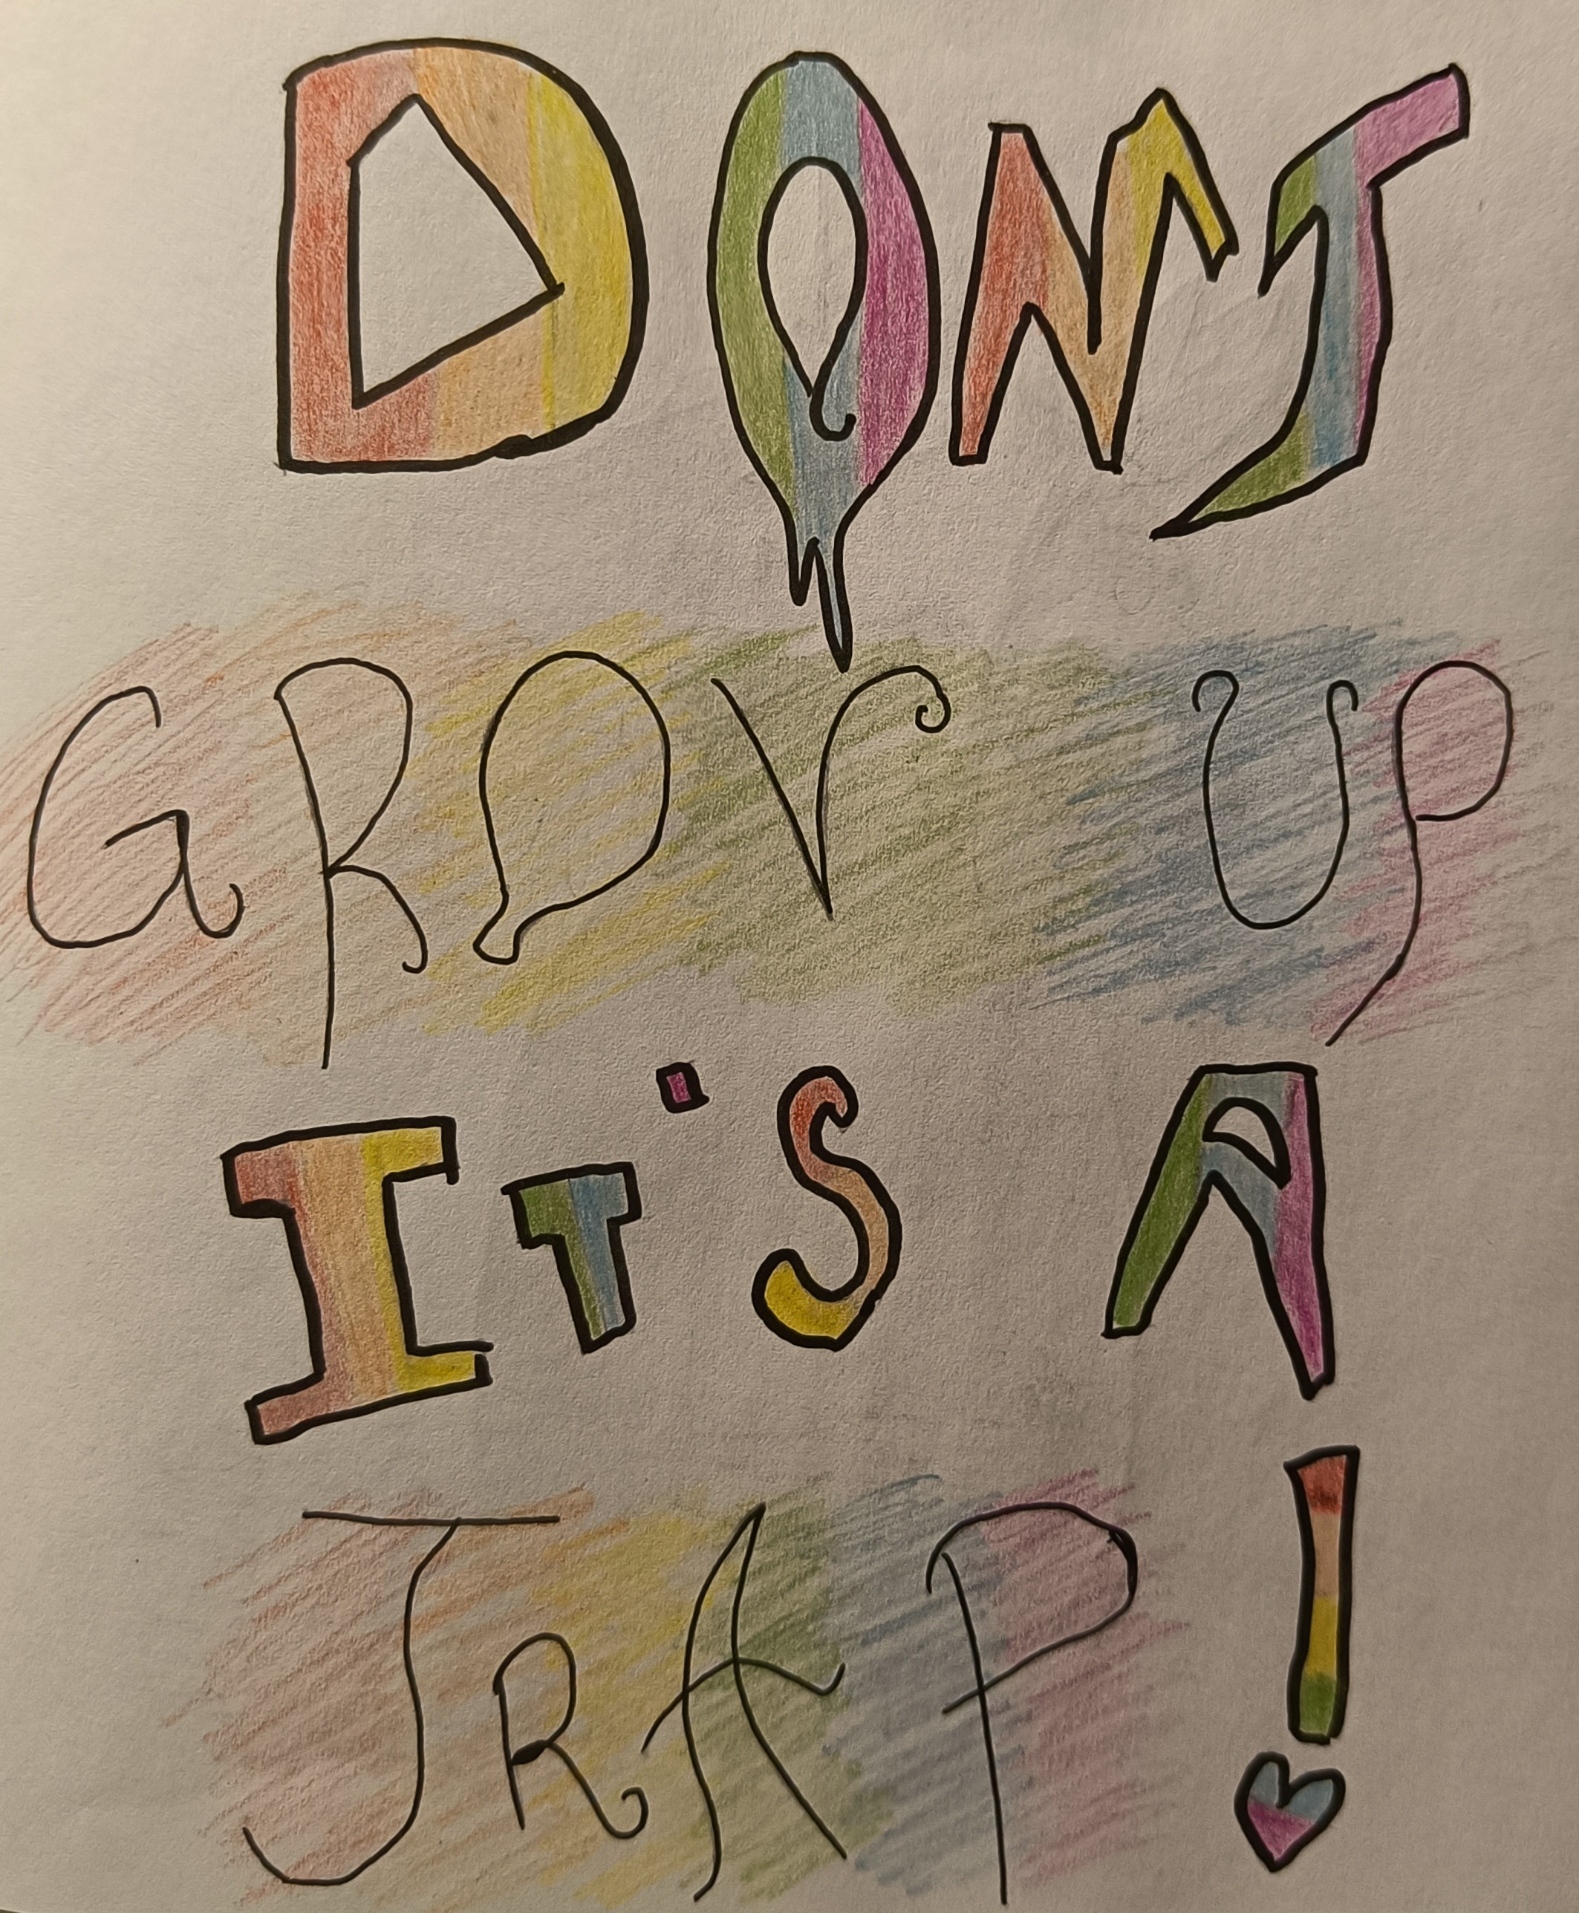 DONT
GROV UP
IT'S A
TRAP!